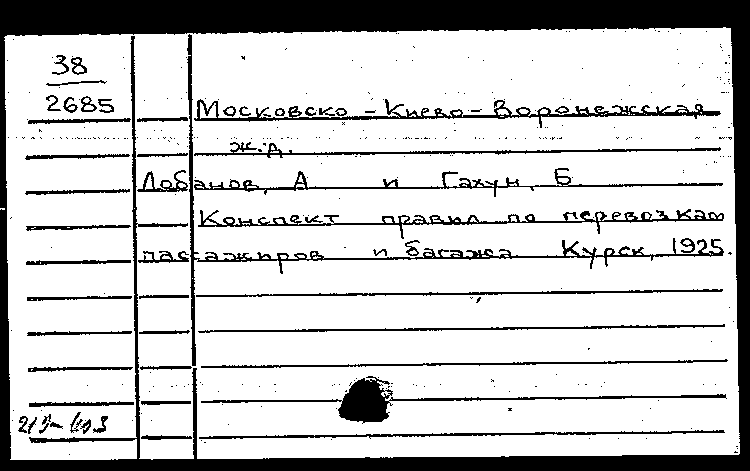 38
2685
Московско-Киево-Воронежская
ж.д.
Лобанов, А и Гахун, Б
Конспект правил по перевозкам
пассажиров и багажа Курск, 1925.